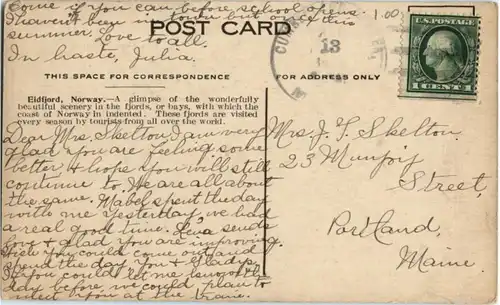 Come if you can before school opens.
Haven't been in town but once this
summer. Love to all.
In haste, Julia.
1.00
POST CARD
U.S. POSTAGE
1 CENT 1
13
THIS SPACE FOR CORRESPONDENCE
FOR ADDRESS ONLY
Eidfjord, Norway.—A glimpse of the wonderfully
beautiful scenery in the fjords, or bays, with which the
coast of Norway in indented. These fjords are visited
every season by tourists from all over the world.
Dear Mrs. Skelton, I am very
glad you are feeling some
better & hope you will still
continue to. We are all about
the same. Mabel spent the day
with me yesterday, we had
a real good time. Lena sends
love & glad you are improving.
Wish you could come out and
spend the day, you & Gladys.
If you could let me know the
day before, we could plan to
meet you at the
Mrs. J. F. Skelton
23 Munjoy
Street,
Portland,
Maine.